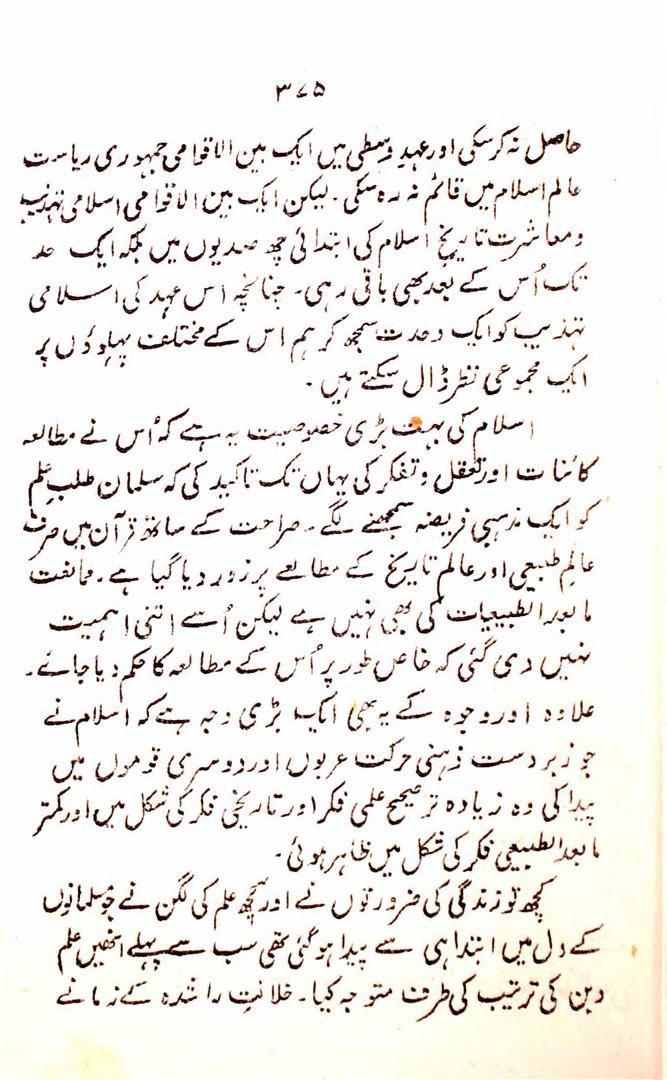 ۳۷۵
حاصل نہ کرسکی اور عہدِ وسطیٰ میں ایک بین الاقوامی جمہوری ریاست
عالم اسلام میں قائم نہ رہ سکی۔ لیکن ایک بین الاقوامی اسلامی تہذیب
ومعاشرت تاریخِ اسلام کی ابتدائی چھ صدیوں میں بلکہ ایک حد
تک اُس کے بعد بھی باقی رہی۔ چنانچہ اس عہد کی اسلامی
تہذیب کو ایک وحدت سمجھ کر ہم اس کے مختلف پہلوؤں پر
ایک مجموعی نظر ڈال سکتے ہیں۔
اسلام کی بہت بڑی خصوصیت یہ ہے کہ اُس نے مطالعہ
کائنات اور تعقل وتفکر کی یہاں تک تاکید کی کہ مسلمان طلبِ علم
کو ایک مذہبی فریضہ سمجھنے لگے۔ صراحت کے ساتھ قرآن میں صرف
عالمِ طبیعی اور عالم تاریخ کے مطالعے پر زور دیا گیا ہے۔ ممانعت
مابعد الطبیعیات کی بھی نہیں ہے لیکن اُسے اتنی اہمیت
نہیں دی گئی کہ خاص طور پر اُس کے مطالعہ کا حکم دیا جائے۔
علاوہ اور وجوہ کے یہ بھی ایک بڑی وجہ ہے کہ اسلام نے
جو زبردست ذہنی حرکت عربوں اور دوسری قوموں میں
پیدا کی وہ زیادہ تر صحیح علمی فکر اور تاریخی فکر کی شکل میں اور کمتر
مابعد الطبیعی فکر کی شکل میں ظاہر ہوئی۔
کچھ تو زندگی کی ضرورتوں نے اور کچھ علم کی لگن نے جو مسلمانوں
کے دل میں ابتدا ہی سے پیدا ہو گئی تھی سب سے پہلے انھیں علم
دین کی ترتیب کی طرف متوجہ کیا۔ خلافتِ راشدہ کے زمانے